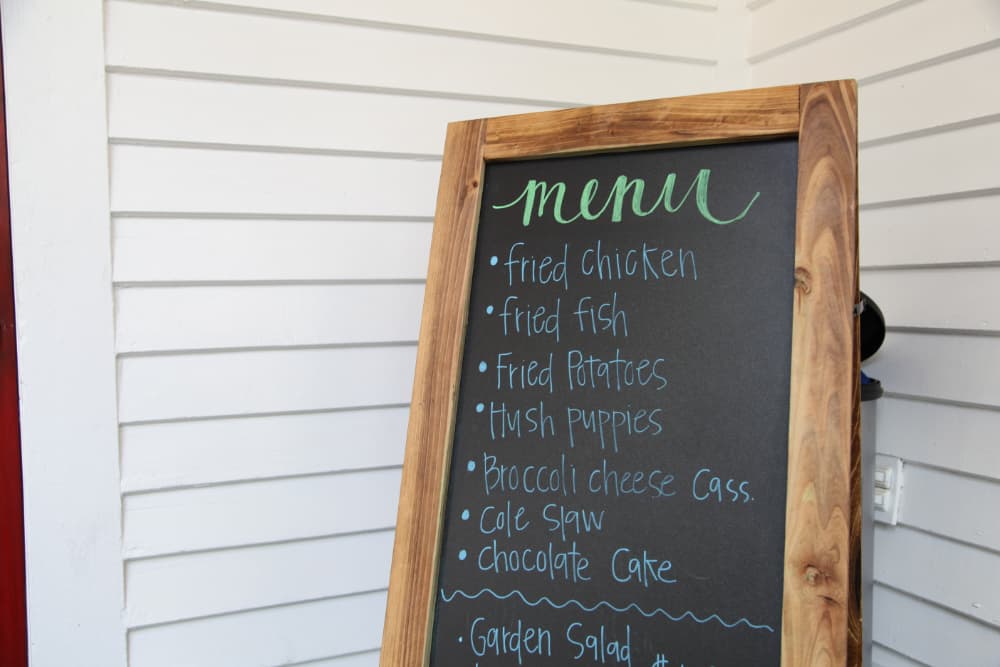 menu
• fried chicken
• fried fish
• Fried Potatoes
• Hush puppies
• Broccoli cheese Cass.
• Cole Slaw
• Chocolate Cake
• Garden Salad